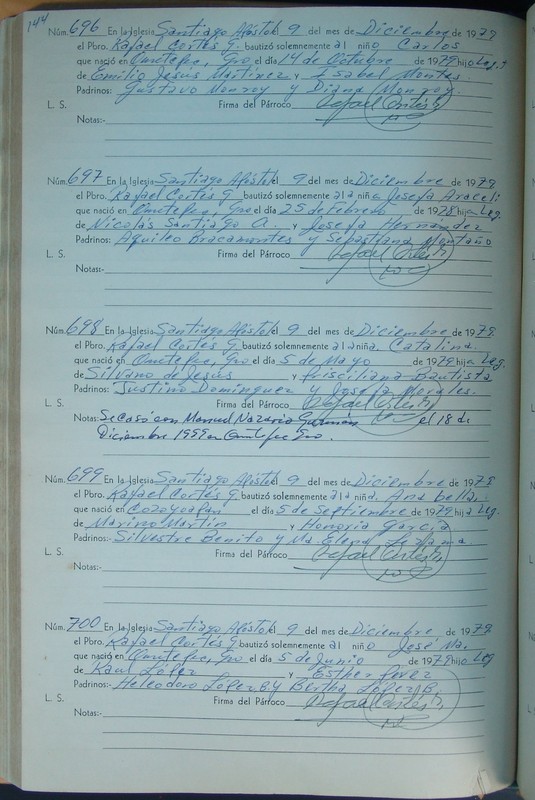 144
Núm. 696 En la Iglesia Santiago Apóstol 9 del mes de Diciembre de 1979
el Pbro. Rafael Cortés G. bautizó solemnemente a l niño Carlos
que nació en Ometepec, Gro el día 14 de Octubre de 1979 hijo Leg.
de Emilio Jesús Martínez y Isabel Montes.
Padrinos: Gustavo Monroy y Diana Monroy.
L. S. Firma del Párroco Rafael Cortés G
Notas:-
Núm. 697 En la Iglesia Santiago Apóstol 9 del mes de Diciembre de 1979
el Pbro. Rafael Cortés G bautizó solemnemente a la niña Josefa Araceli
que nació en Ometepec, Gro el día 25 de Febrero de 1978 hija Leg.
de Nicolás Santiago A. y Josefa Hernandez
Padrinos: Aquileo Bracamontes y Sebastiana Montaño
L. S. Firma del Párroco
Notas:-
Núm. 698 En la Iglesia Santiago Apóstol 9 del mes de Diciembre de 1979
el Pbro. Rafael Cortés G bautizó solemnemente a la niña. Catalina.
que nació en Ometepec, Gro el día 5 de Mayo de 1979 hija Leg.
de Silvano de Jesús y Prisciliana Bautista
Padrinos: Justino Dominguez y Josefa Morales.
L. S. Firma del Párroco
Notas: Se casó con Manuel Nazario Guzmán el 18 de
Diciembre 1999 en Ometepec Gro.
Núm. 699 En la Iglesia Santiago Apóstol 9 del mes de Diciembre de 1979
el Pbro. Rafael Cortés G. bautizó solemnemente a la niña. Ana bella.
que nació en Cozoyoapan el día 5 de Septiembre de 1979 hija Leg.
de Marino Martin y Honoria García
Padrinos:- Silvestre Benito y Ma. Elena Lezama.
L. S. Firma del Párroco
Notas:-
Núm. 700 En la Iglesia Santiago Apóstol 9 del mes de Diciembre de 1979
el Pbro. Rafael Cortés G. bautizó solemnemente a l niño José Ma.
que nació en Ometepec, Gro el día 5 de Junio de 1979 hijo Leg
de Raul López y Esther Pérez
Padrinos:- Heleodoro López B. y Bertha López B.
L. S. Firma del Párroco
Notas:-